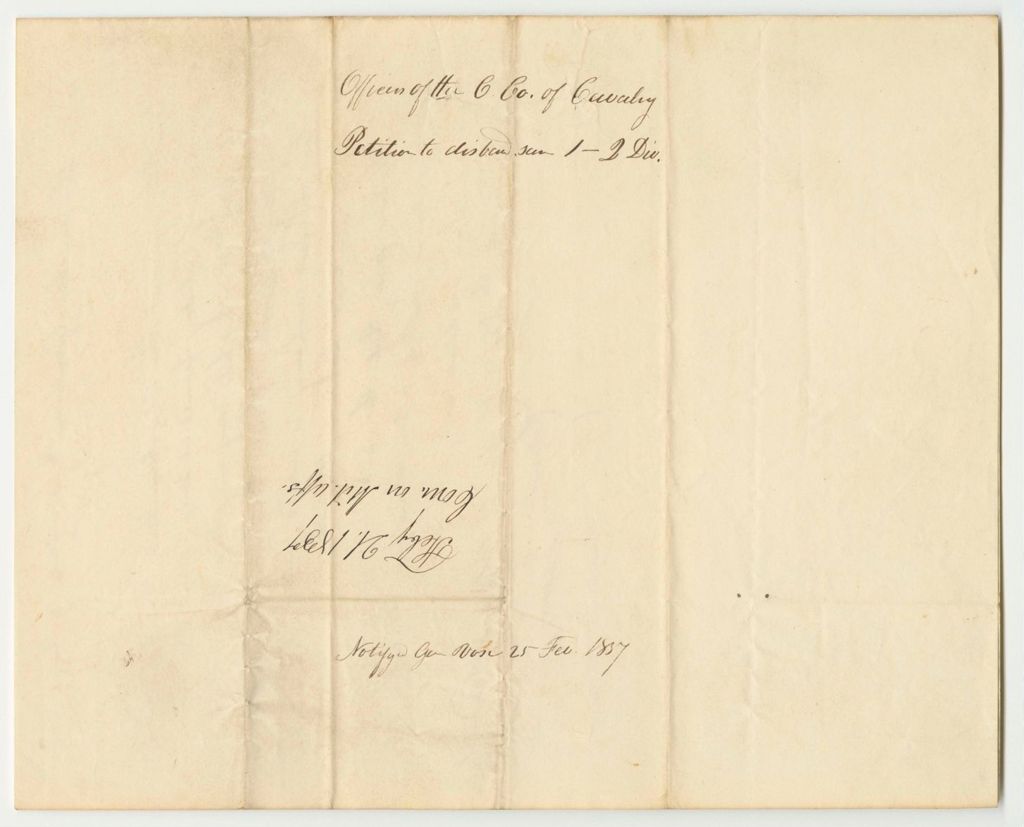 Officers of the C Co. of Cavalry
Petition to disband sam 1 – 2 Div.
Feby 21. 1837
Com. on Mil. affs.
Notifyd Gen Vose 25 Feb. 1837